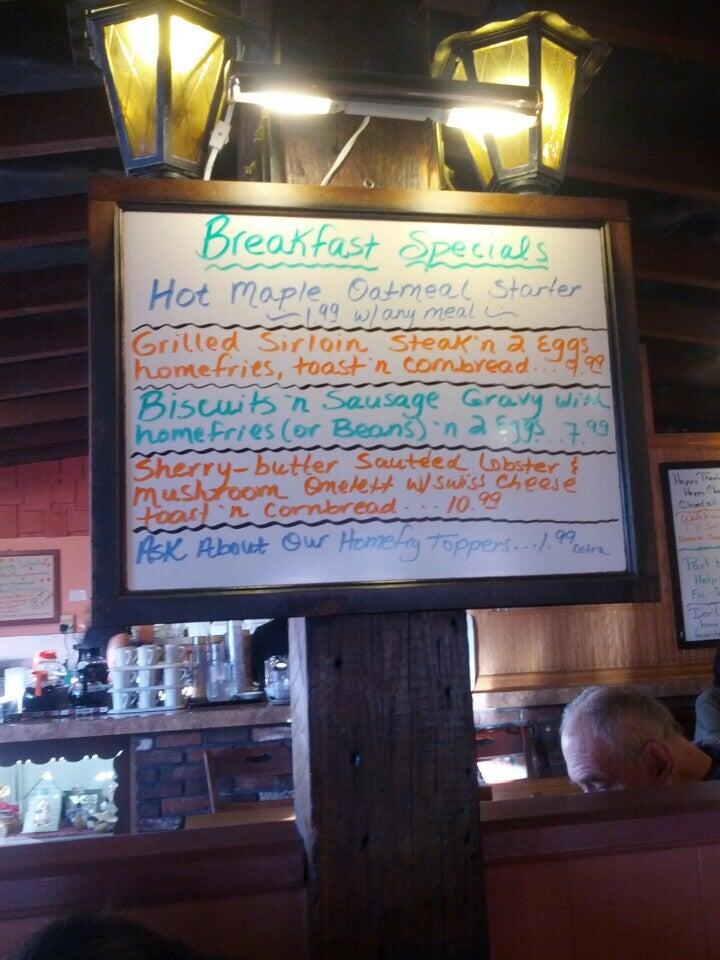 Breakfast Specials
Hot Maple Oatmeal Starter
1.99 w/any meal
Grilled Sirloin Steak 'n 2 Eggs
homefries, toast 'n cornbread... 9.99
Biscuits 'n Sausage Gravy with
homefries (or Beans) 'n 2 Eggs..7.99
Sherry-butter Sauteed Lobster &
Mushroom Omelett w/swiss cheese
toast 'n cornbread... 10.99
Ask About Our Homefry Toppers...1.99 extra
Happy
Happy
Closed
Part
Help
Fri.
Don't
home